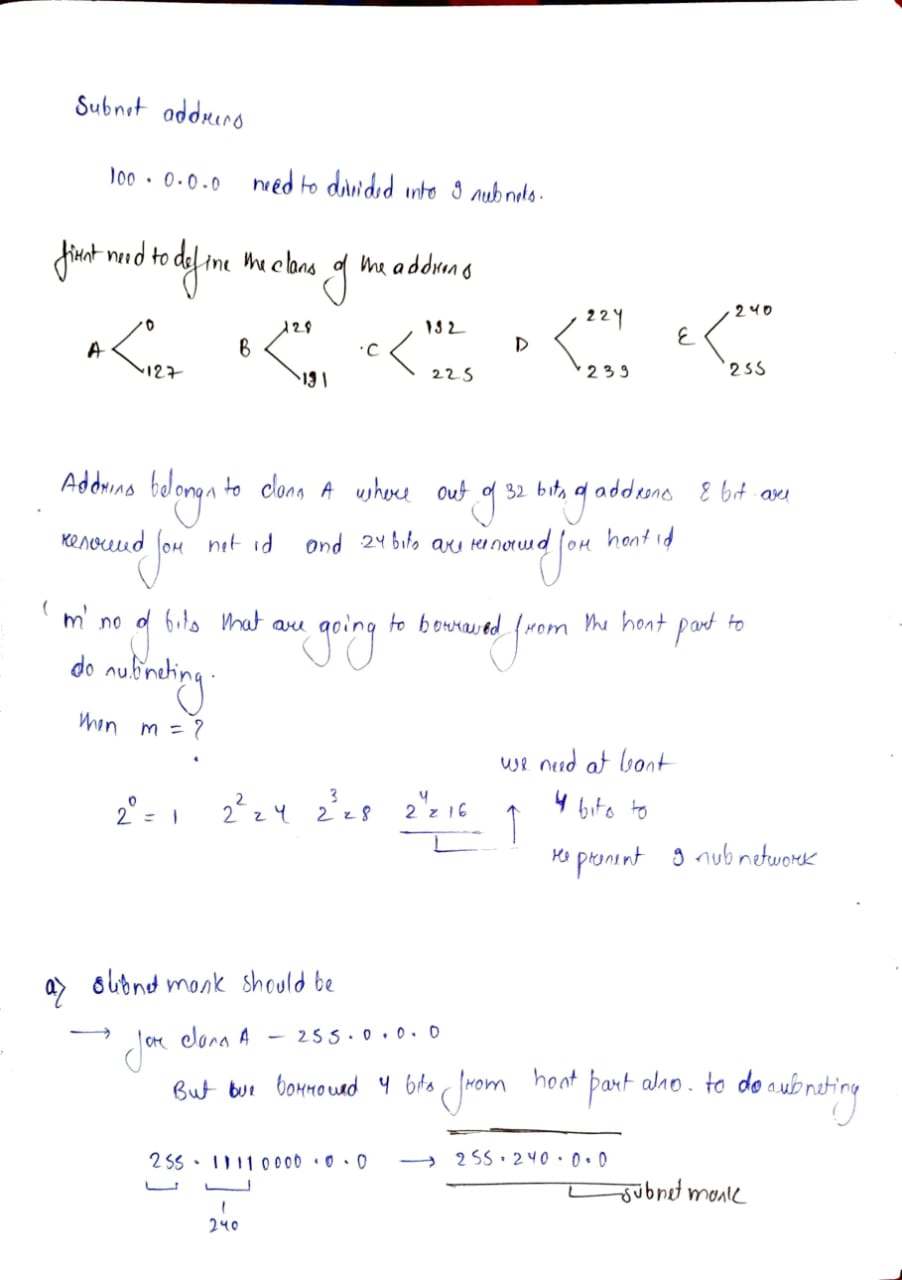 Subnet address
100.0.0.0 need to divided into 9 subnets.
first need to define the class of the address
A 0 127 B 128 191 C 192 225 D 224 239 E 240 255
Address belongs to class A where out of 32 bits of address 8 bit are
reserved for net id and 24 bits are reserved for host id
'm' no of bits that are going to borrawed from the host part to
do subneting.
then m = ?
we need at least
2⁰ = 1 2² = 4 2³ = 8 2⁴ = 16 ↑ 4 bits to
represent 9 subnetwork
a) Subnet mask should be
→ for class A - 255.0.0.0
But we borrowed 4 bits from host part also. to do subneting
255.11110000.0.0 → 255.240.0.0
subnet mask
240